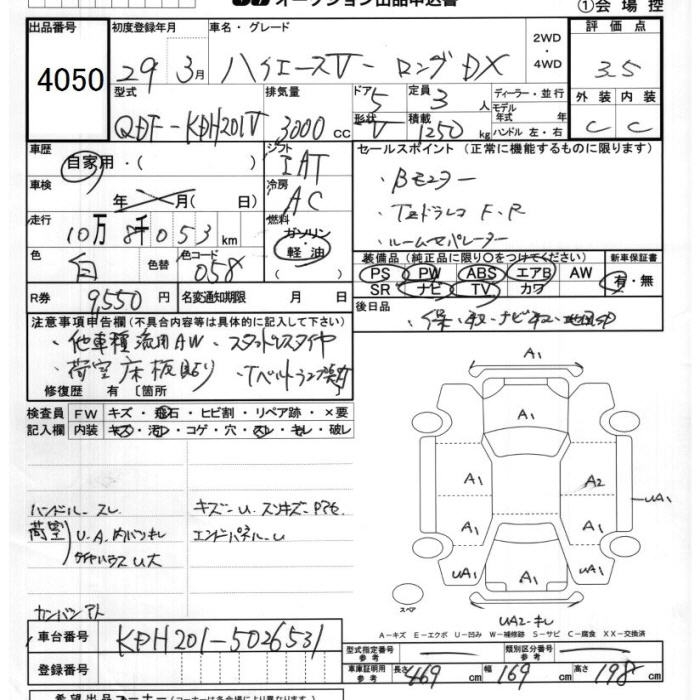 オークション出品申込書
①会場控
出品番号
4050
初度登録年月
29年3月
車名・グレード
ハイエースV-ロングDX
2WD・4WD
評価点
3.5
型式
QDF-KDH201V
排気量
3000cc
ドア
5
形状
V
定員
3人
積載
1250kg
ディーラー・並行
モデル年式 年
ハンドル 左・右
外装 内装
C C
車歴
自家用・( )
シフト
IAT
セールスポイント(正常に機能するものに限ります)
・Bモニター
・TZドラレコ F.R
・ルームセパレーター
車検
年 月( 日)
冷房
AC
走行
10万8千053km
燃料
ガソリン・軽油
色
白
色替
色コード
058
装備品(純正品に限り○をつけてください)
新車保証書
PS PW ABS エアB AW
有・無
SR ナビ TV カワ
R券
9,550円
名変通知期限 月 日
後日品
・保・取・ナビ取・
注意事項申告欄(不具合内容等は具体的に記入して下さい)
・他車種流用AW・スタッドレスタイヤ
・荷室床板貼り ・Tベルトランプ
修復歴 有 〔箇所
検査員記入欄
FW キズ・飛石・ヒビ割・リペア跡・×要
内装 キズ・汚レ・コゲ・穴・スレ・キレ・破レ
ハンドルースレ
キズーU.スリキズーPタイ
荷室)U.A.内バンキレ
エンドパネルーU
タイヤハウスU大
カンバンアト
A1
A1
A1
A1 A2
UA1
A1 A1
UA1 A1 UA1
スペア
UA2-キレ
A-キズ E-エクボ U-凹み W-補修跡 S-サビ C-腐食 XX-交換済
車台番号
KDH201-5026531
型式指定番号参考
類別区分番号参考
登録番号
車庫証明用参考
長さ 469cm 幅 169cm 高さ 198cm
希望出品コーナー(コーナーは各会場により異なります)